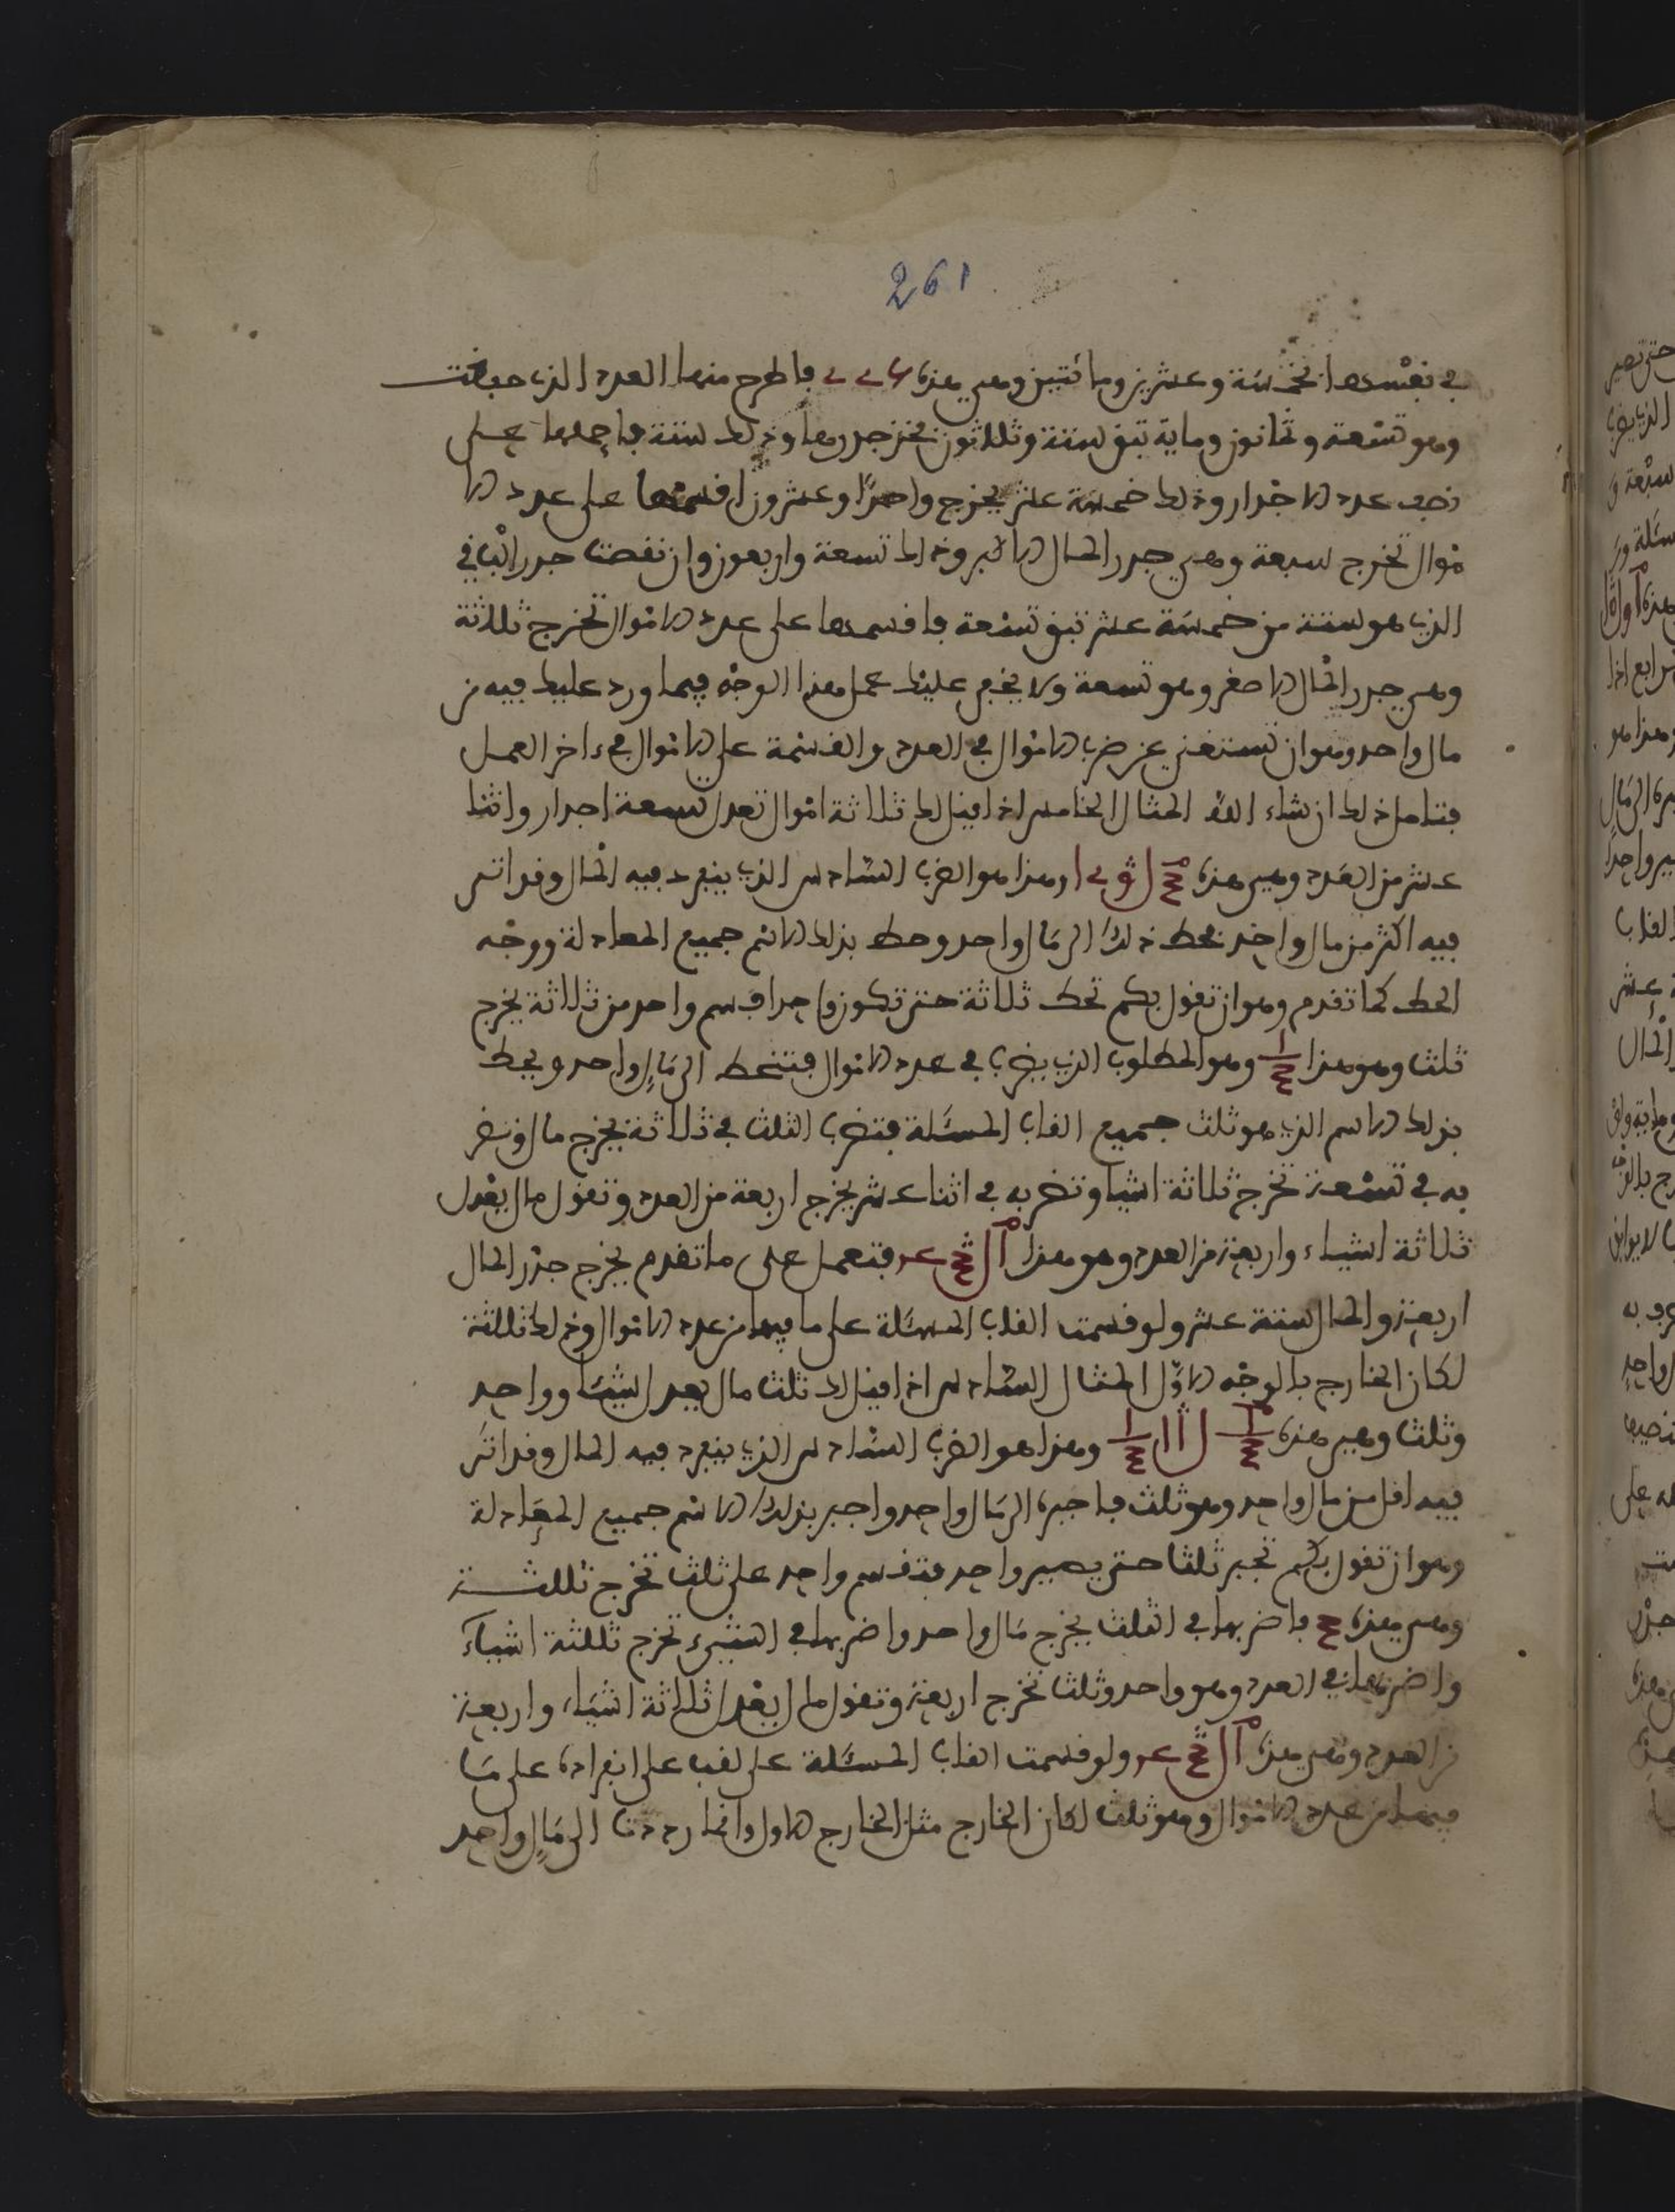 261
في نفسها خمسة وعشرين ومائتين وهي هذه فاطرح منها العدد الذي حفظت
وهو تسعة وثمانون وماية تبق ستة وثلاثون فخذ جذرها وذلك ستة فاحملها على
نصف عدد الاجذار وذلك خمسة عشر يخرج واحدا وعشرون اقسمها على عدد الا
موال تخرج سبعة وهي جذر المال الاكبر وذلك تسعة واربعون وان نقصت جذر الباقي
الذي هو ستة من خمسة عشر تبق تسعة فاقسمها على عدد الاموال تخرج ثلاثة
وهي جذر المال الاصغر وهو تسعة ولا يخفى عليك عمل هذا الوجه فيما ورد عليك فيه من
مال واحد وهو ان تستغني عن ضرب الاموال في العدد والقسمة على الاموال في ءاخر العمل
فتامل ذلك ان شاء الله المثال الخامس اذا قيل لك ثلاثة اموال تعدل تسعة اجذار واثنا
عشر من العدد وهي هذه وهذا هو الضرب السادس الذي ينفرد فيه المال وقد اتى
فيه اكثر من مال واحد فحط ذلك الى مال واحد وحط بذلك الاسم جميع المعادلة ووجه
الحط كما تقدم وهو ان تقول بكم تحط ثلاثة حتى تكون واحدا فسم واحد من ثلاثة يخرج
ثلث وهو هذا ١/٣ وهو المطلوب الذي يضرب في عدد الاموال فتنحط الى مال واحد ويحط
بذلك الاسم الذي هو ثلث جميع القاب المسئلة فتضرب الثلث في ثلاثة يخرج مال وتضر
به في تسعة تخرج ثلاثة اشيا وتضربه في اثنا عشر يخرج اربعة من العدد وتقول مال يعدل
ثلاثة اشياء واربعة من العدد وهو هذا فتعمل على ما تقدم يخرج جذر المال
اربعة والمال ستة عشر ولو قسمت القاب المسئلة على ما فيها من عدد الاموال وذلك ثلاثة
لكان الخارج بالوجه الاول المثال السادس اذا قيل لك ثلث مال يعدل شيئا وواحد
وثلث وهي هذه وهذا هو الضرب السادس الذي ينفرد فيه المال وقد اتى
فيه اقل من مال واحد وهو ثلث فاجبره الى مال واحد واجبر بذلك الاسم جميع المعادلة
وهو ان تقول بكم تجبر ثلثا حتى يصير واحد فتقسم واحد على ثلث تخرج ثلثة
وهي هذه فاضربها في الثلث يخرج مال واحد واضربها في الشيء تخرج ثلثة اشياء
واضربها في العدد وهو واحد وثلث تخرج اربعة وتقول مال يعدل ثلاثة اشياء واربعة
من العدد وهي هذه ولو قسمت القاب المسئلة على لقب على انفراده على ما
فيها من عدد الاموال وهو ثلث لكان الخارج مثل الخارج الاول وانما رددت الى مال واحد